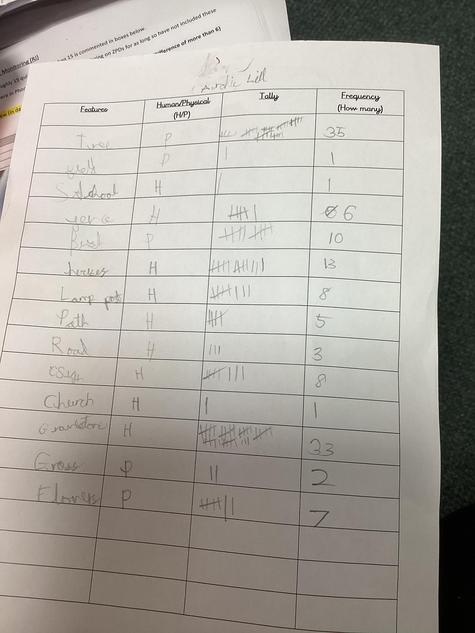 Monitoring (N)
15 is commented in boxes below.
on ZPDs for as long so have not included these
difference of more than 6)
Features Human/Physical (H/P) Tally Frequency (How many)
Tree P 35
P 1
School H 1
H 6
P 10
H 13
Lamp post H 8
Path H 5
Road H 3
H 8
Church H 1
Gravestone H 33
Grass P 2
Flowers P 7